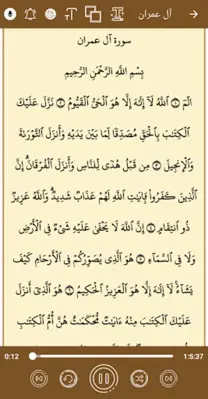 آل عمران
سورة آل عمران
بِسْمِ اللَّهِ الرَّحْمَٰنِ الرَّحِيمِ
الٓمٓ ۝١ ٱللَّهُ لَآ إِلَٰهَ إِلَّا هُوَ ٱلْحَىُّ ٱلْقَيُّومُ ۝٢ نَزَّلَ عَلَيْكَ
ٱلْكِتَٰبَ بِٱلْحَقِّ مُصَدِّقًا لِّمَا بَيْنَ يَدَيْهِ وَأَنزَلَ ٱلتَّوْرَىٰةَ
وَٱلْإِنجِيلَ ۝٣ مِن قَبْلُ هُدًى لِّلنَّاسِ وَأَنزَلَ ٱلْفُرْقَانَ ۗ إِنَّ
ٱلَّذِينَ كَفَرُوا۟ بِـَٔايَٰتِ ٱللَّهِ لَهُمْ عَذَابٌ شَدِيدٌ ۗ وَٱللَّهُ عَزِيزٌ
ذُو ٱنتِقَامٍ ۝٤ إِنَّ ٱللَّهَ لَا يَخْفَىٰ عَلَيْهِ شَىْءٌ فِى ٱلْأَرْضِ
وَلَا فِى ٱلسَّمَآءِ ۝٥ هُوَ ٱلَّذِى يُصَوِّرُكُمْ فِى ٱلْأَرْحَامِ كَيْفَ
يَشَآءُ ۚ لَآ إِلَٰهَ إِلَّا هُوَ ٱلْعَزِيزُ ٱلْحَكِيمُ ۝٦ هُوَ ٱلَّذِىٓ أَنزَلَ
عَلَيْكَ ٱلْكِتَٰبَ مِنْهُ ءَايَٰتٌ مُّحْكَمَٰتٌ هُنَّ أُمُّ ٱلْكِتَٰبِ
0:12 1:5:37